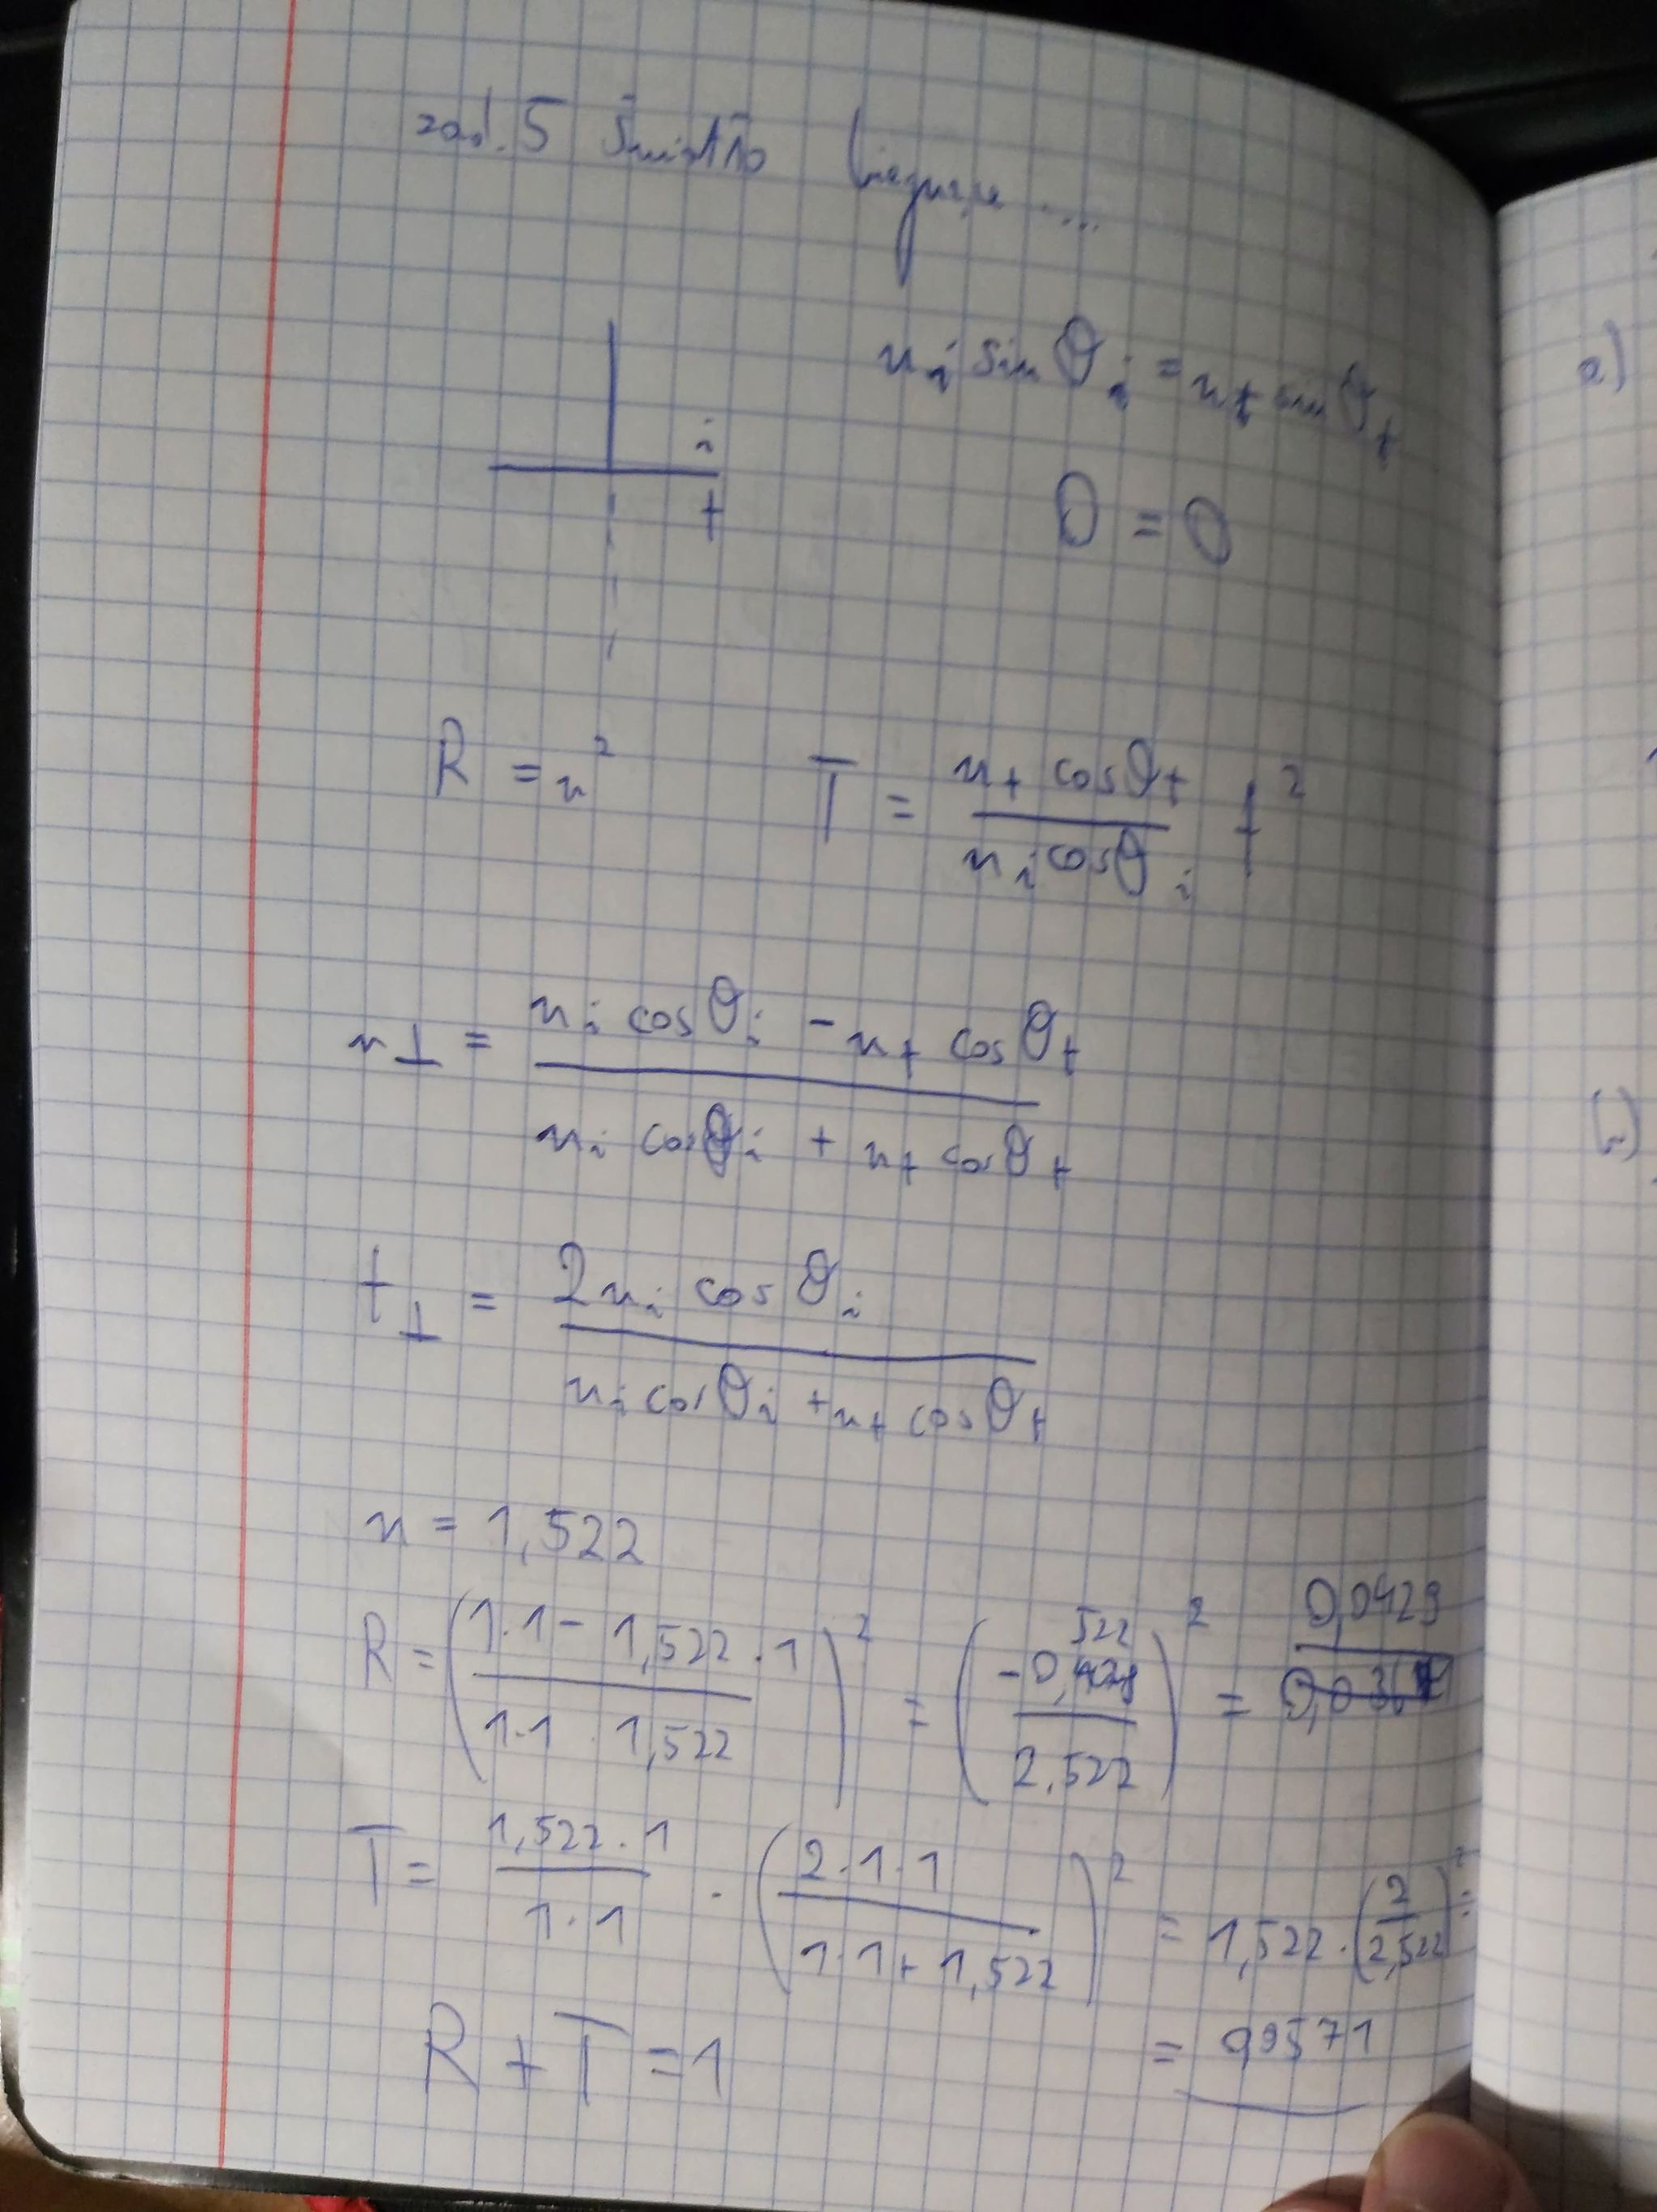 zad. 5 Światło biegnące ....
n_i sin θ_i = n_t sin θ_t
i
t
0 = 0
R = r² T = (n_t cos θ_t)/(n_i cos θ_i) t²
r⊥ = (n_i cos θ_i - n_t cos θ_t)/(n_i cos θ_i + n_t cos θ_t)
t⊥ = (2n_i cos θ_i)/(n_i cos θ_i + n_t cos θ_t)
n = 1,522
R = ((1·1 - 1,522·1)/(1·1 · 1,522))² = (-0,522/2,522)² = 0,0429
T = (1,522·1)/(1·1) · ((2·1·1)/(1·1+1,522))² = 1,522·(2/2,522)² =
R + T = 1 = 0,9571
a)
b)